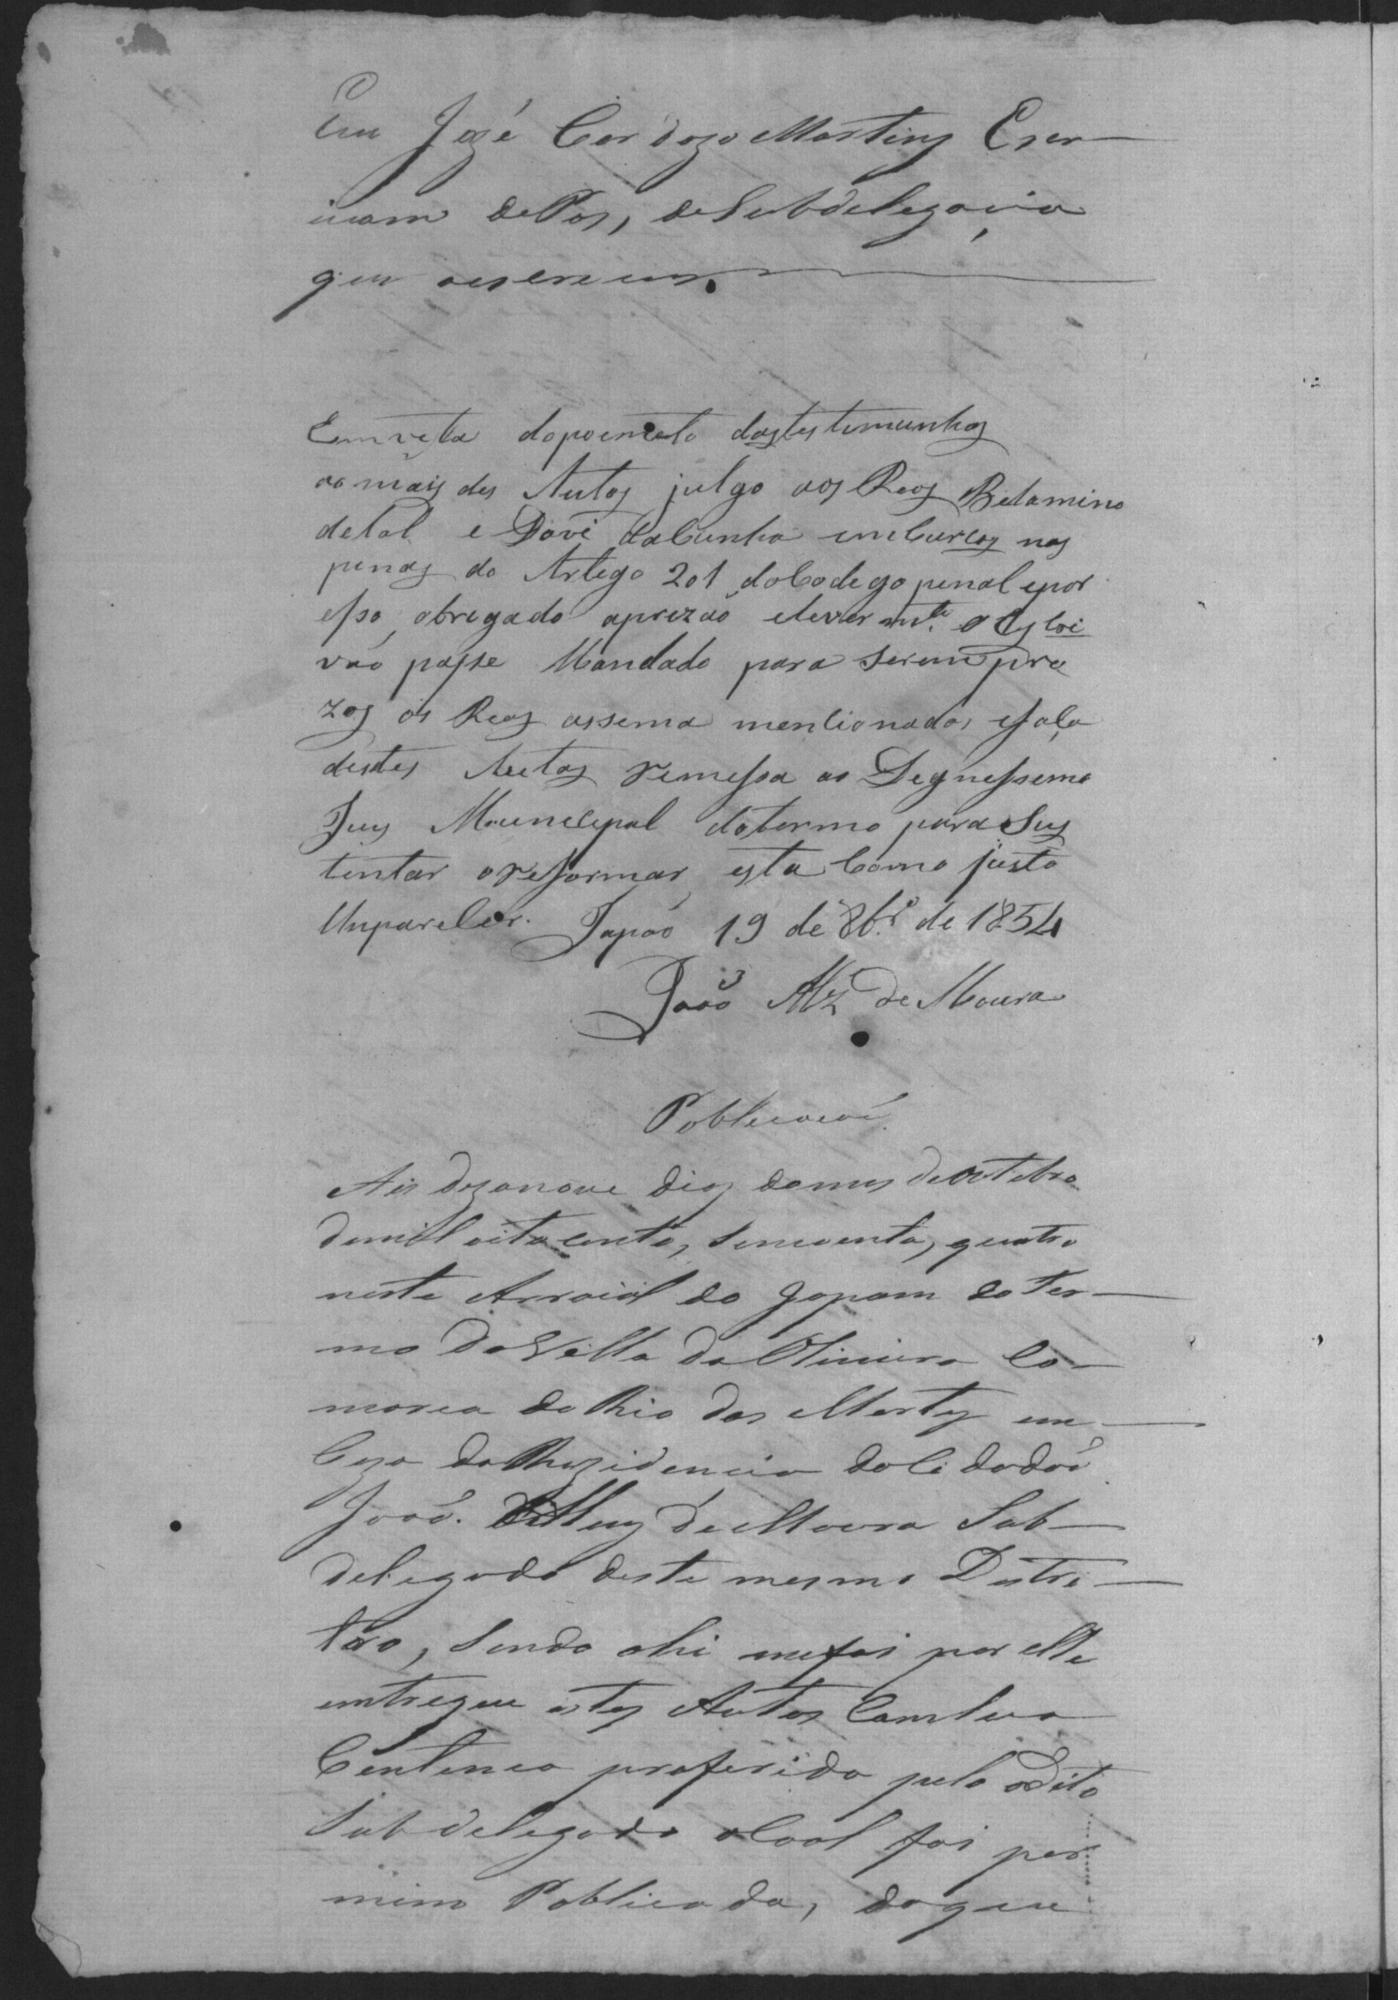 Eu José Cardozo Martins Escr
ivam de Pas, de Subdelegacia
que o escrevy.
Em vista dopoemento dastestemunhas
o mais des Autos julgo aos Reos Belamino
detal e Davi da Cunha incurcos nas
penas do Artego 201 do Codego penal epor
esso obrigado aprezão elevramte. o Escri
vão passe Mandado para serem pre
zos os Reos assema mencionados efaca
destes Autos remessa ao Degnessemo
Juis Municepal dotermo para Sus
tentar oreformar esta Como justo
lheparecer. Japão 19 de 8br.º de 1854
João Alz de Moura
Poblicacaõ
Ais dezanove dias domes de Outobro
demil oito centos, sincoenta, quatro
neste Arraial do Japam do ter
mo da Villa da Oliveira Co
marca do Rio das Mortes em
Caza da Rezidencia do Cidadaõ
Joaõ Alves de Moura Sub
delegado deste mesmo Destri
to, sendo ahi mefoi por elle
entregue estes Autos Com sua
Centenca proferida pelo dito
Subdelegado aCoal foi por
mim Poblicada, doque